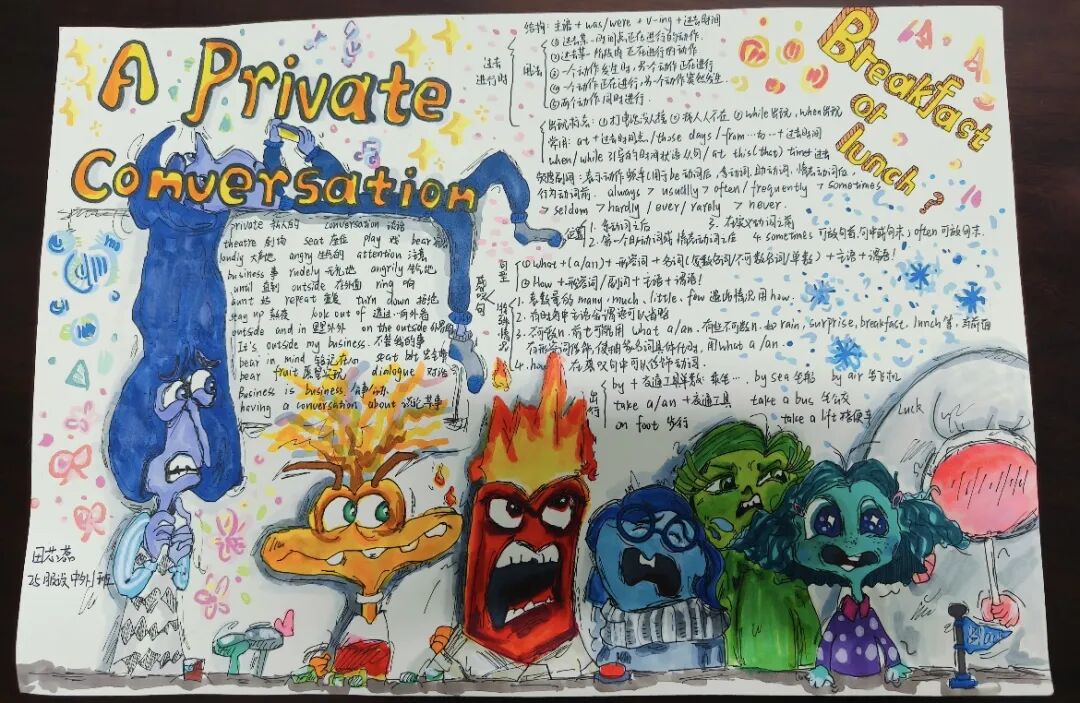 A Private
Conversation
Breakfast
or
lunch?
过去
进行时
结构：主语 + was/were + v-ing + 过去时间
用法
① 过去某一时间点正在进行的动作.
② 过去某一阶段内正在进行的动作
③ 一个动作发生时, 另一个动作正在进行
④ 一个动作正在进行, 另一个动作突然发生
⑤ 两个动作同时进行.
出现标志：① 打电话没人接 ② 找人人不在 ③ while出现, when出现
常用: at + 过去时间点 / those days / from … to … + 过去时间
when/while 引导的时间状语从句 / at this (that) time + 过去
频度副词：表示动作频率(用于be动词后, 系动词, 助动词, 情态动词后,
行为动词前. always > usually > often / frequently > sometimes
> seldom > hardly / ever / rarely > never.
位置
1. 系动词之后
3. 在实义动词之前
2. 第一个助动词或情态动词之后
4 sometimes 可放句首, 句中或句末; often 可放句末.
感叹句
句型
① What + (a/an) + 形容词 + 名词 (复数名词/不可数名词/单数) + 主语 + 谓语!
② How + 形容词 / 副词 + 主语 + 谓语!
特殊情况
1. 表数量的 many, much, little, few 遇此情况用 how.
2. 有时句中主语含谓语可以省略
3. 不可数n. 前也可能用 what a/an. 有些不可数n. 如 rain, surprise, breakfast, lunch 等, 前面
有形容词修饰, 使抽象名词具体化时, 用 what a/an.
4. how 在感叹句中可以修饰动词.
出行
by + 交通工具单数 乘坐… by sea 坐船 by air 坐飞机
take a/an + 交通工具 take a bus 坐公交
on foot 步行 take a lift 搭便车
private 私人的 conversation 谈话
theatre 剧场 seat 座位 play 戏 bear 容忍
loudly 大声地 angry 生气的 attention 注意
business 事 rudely 无礼地 angrily 生气地
until 直到 outside 在外面 ring 响
aunt 姑 repeat 重复 turn down 拒绝
stay up 熬夜 look out of 透过…向外看
outside and in 里里外外 on the outside 外界的
It's outside my business. 不管我的事
bear in mind 铭记在心 seat belt 安全带
bear fruit 愿望实现 dialogue 对话
Business is business 公事公办
having a conversation about 谈论某事
Luck
25服设中外1班